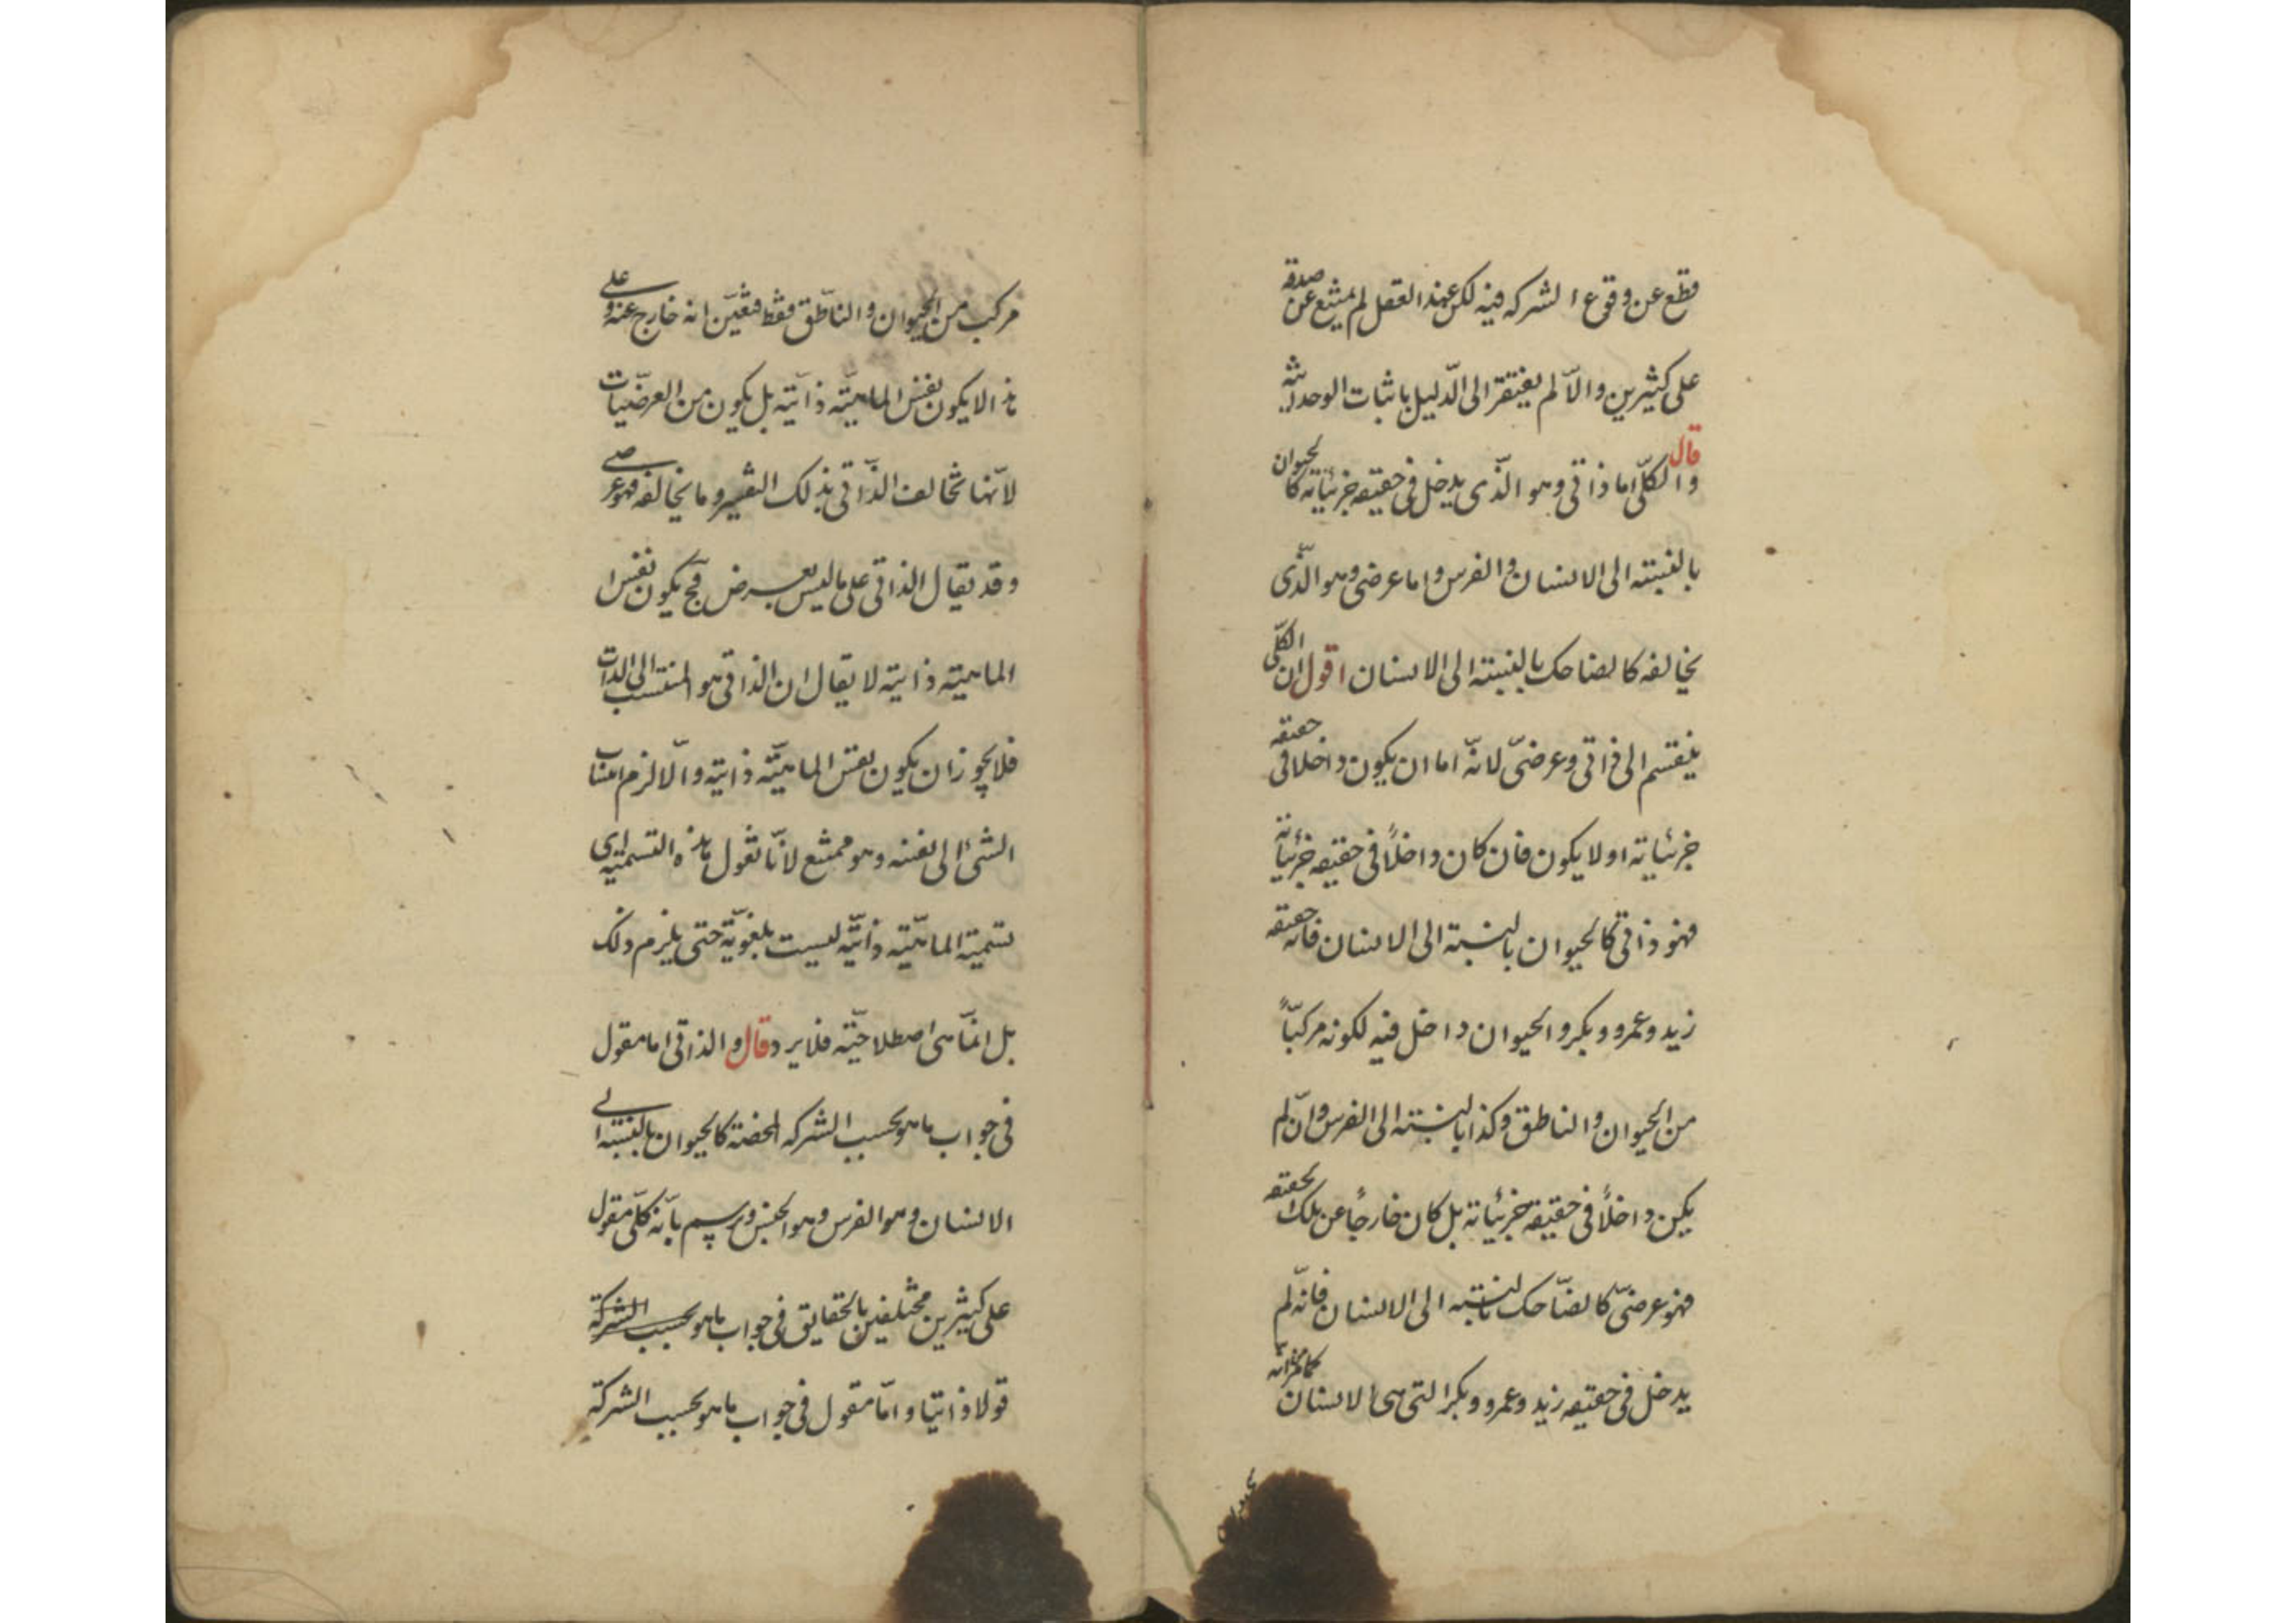 قطع عن وقوع الشركه فيه لكن عند العقل لم يمتنع عن صدقه
على كثيرين والّا لم يفتقر الى الدّليل باثبات الوحدانية
قال والكلّى اما ذاتى وهو الّذى يدخل فى حقيقه جزئياته كالحيوان
بالنسبته الى الانسان والفرس واما عرضى وهو الّذى
يخالفه كالضاحك بالنسبته الى الانسان اقول ان الكلّى
ينقسم الى ذاتى وعرضىّ لانّه اما ان يكون داخلا فى حقيقه
جزئياته او لا يكون فان كان داخلاً فى حقيقه جزئياته
فهو ذاتى كالحيوان بالنسبة الى الانسان فانه حقيقه
زيد وعمرو وبكر والحيوان داخل فيه لكونه مركبّاً
من الحيوان والناطق وكذا بالنسبته الى الفرس وان لم
يكن داخلاً فى حقيقه جزئياته بل كان خارجاً عن تلك الحقيقه
فهو عرضىّ كالضّاحك بالنسبته الى الانسان فانّه لم
يدخل فى حقيقه زيد وعمرو وبكر التى هى الانسان
مركب من الحيوان والناطق فقط فتعيّن انه خارج عنه وعلى
هذا لا يكون نفس الماهيّته ذاتيّته بل يكون من العرضيّات
لانّها تخالف الذّاتى بذلك التفسير وما يخالفه فهو عرضى
وقد يقال الذاتى على ماليس بعرض فح يكون نفس
الماهيته ذاتيته لا يقال ان الذاتى هو المنتسب الى الذات
فلا يجوز ان يكون نفس الماهيّته ذاتيته والّا لزم انتساب
الشئ الى نفسه وهو ممتنع لانّا نقول هذه التسميته اى
تسميته الماهيّته ذاتيّه ليست بلغويّة حتى يلزم ذلك
بل انمّا هى اصطلاحيّته فلا يرد قال والذاتى اما مقول
فى جواب ماهو بحسب الشركه المحضته كالحيوان بالنسبته الى
الانسان وهو الفرس وهو الجنس ويرسم بانّه كلّى مقول
على كثيرين مختلفين بالحقايق فى جواب ماهو بحسب الشركة
قولا ذاتيّا وامّا مقول فى جواب ماهو بحسب الشركة